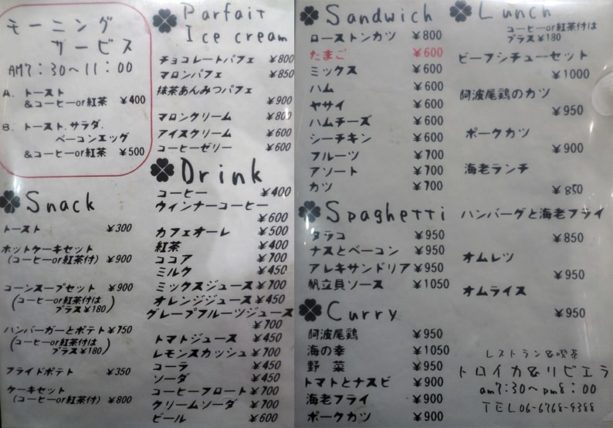 モーニング
サービス
AM7:30〜11:00
A. トースト
&コーヒーor紅茶 ¥400
B. トースト,サラダ,
ベーコンエッグ
&コーヒーor紅茶 ¥500
Snack
トースト ¥300
ホットケーキセット
(コーヒーor紅茶付) ¥900
コーンスープセット ¥900
(コーヒーor紅茶付は
プラス¥180)
ハンバーガーとポテト ¥750
(コーヒーor紅茶付は
プラス¥180)
フライドポテト ¥350
ケーキセット
(コーヒーor紅茶付) ¥800
Parfait
Ice cream
チョコレートパフェ ¥800
マロンパフェ ¥850
抹茶あんみつパフェ
¥900
マロンクリーム ¥800
アイスクリーム ¥600
コーヒーゼリー ¥600
Drink
コーヒー ¥400
ウィンナーコーヒー
¥600
カフェオーレ ¥500
紅茶 ¥400
ココア ¥700
ミルク ¥450
ミックスジュース ¥700
オレンジジュース ¥450
グレープフルーツジュース
¥700
トマトジュース ¥450
レモンスカッシュ ¥700
コーラ ¥450
ソーダ ¥450
コーヒーフロート ¥700
クリームソーダ ¥700
ビール ¥600
Sandwich
ローストンカツ ¥800
たまご ¥600
ミックス ¥600
ハム ¥600
ヤサイ ¥600
ハムチーズ ¥600
シーチキン ¥600
フルーツ ¥700
アソート ¥700
カツ ¥700
Spaghetti
タラコ ¥950
ナスとベーコン ¥950
アレキサンドリア ¥950
帆立貝ソース ¥1050
Curry
阿波尾鶏 ¥950
海の幸 ¥1050
野菜 ¥950
トマトとナスビ ¥900
海老フライ ¥900
ポークカツ ¥900
Lunch
コーヒーor紅茶付は
プラス¥180
ビーフシチューセット
¥1000
阿波尾鶏のカツ
¥950
ポークカツ
¥900
海老ランチ
¥850
ハンバーグと海老フライ
¥850
オムレツ
¥950
オムライス
¥950
レストラン&喫茶
トロイカ&リビエラ
am7:30〜pm8:00
TEL06-6768-9388